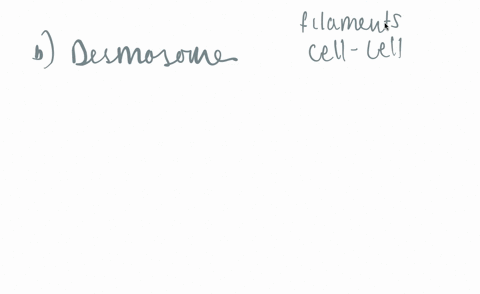 b) Desmosome
filaments
cell-cell